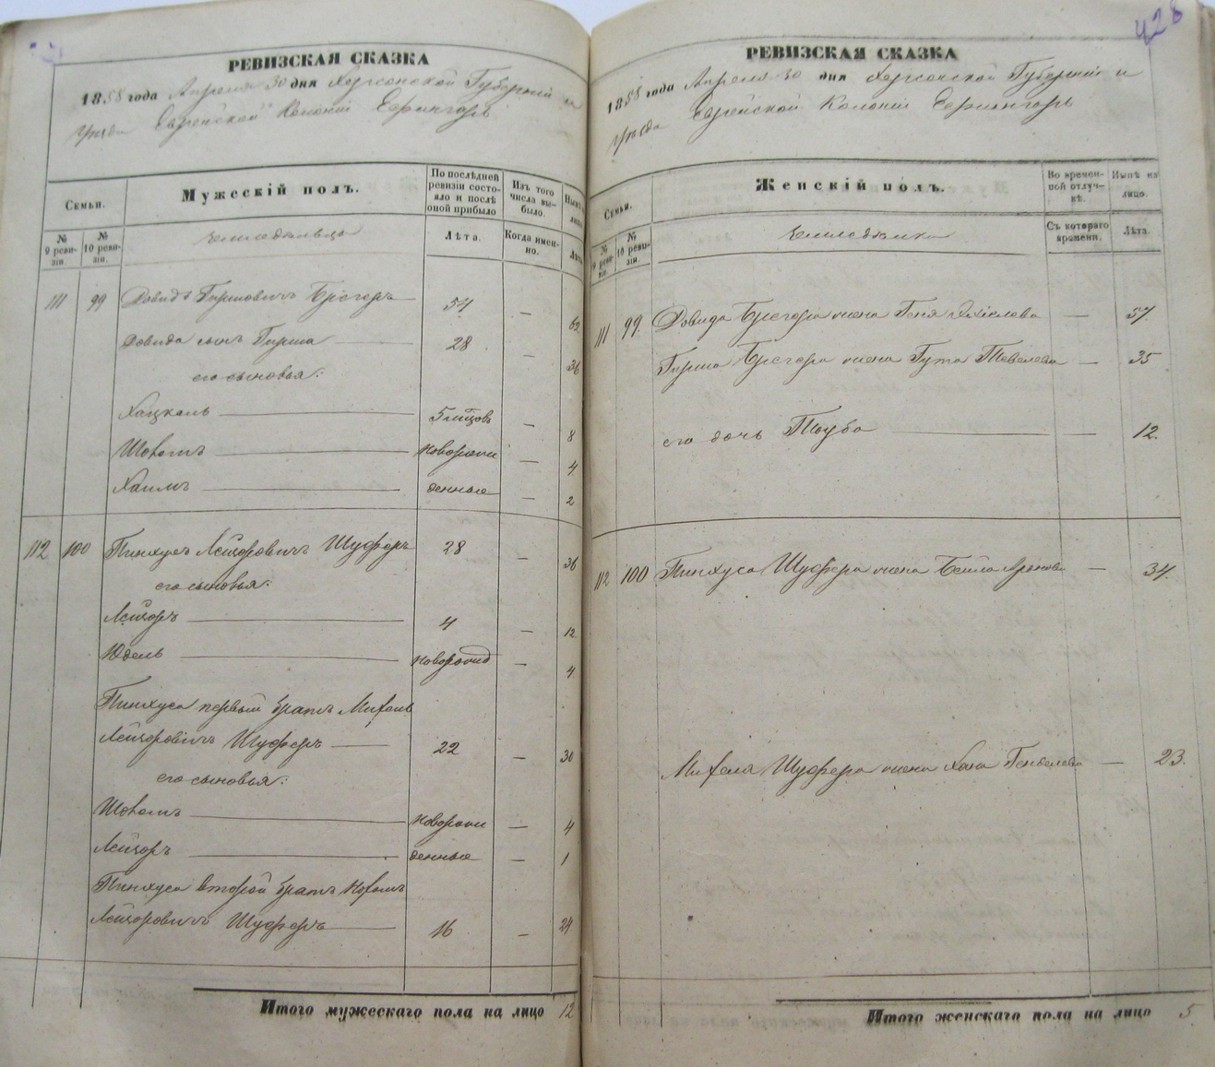 РЕВИЗСКАЯ СКАЗКА
1858 года Апреля 30 дня Херсонской Губерніи и
уезда Еврейской Колоніи
Семьи.
Мужескій полъ.
По послѣдней ревизіи состояло и послѣ оной прибыло
Изъ того числа выбыло.
Нынѣ на лицо.
№ 9 ревизіи.
№ 10 ревизіи.
Земледѣльцы
Лѣта.
Когда именно.
Лѣта.
111 99 Довидъ Гиршовичъ 54 — 62
Довида сынъ Гирша 28 — 36
его сыновья:
Хацкель 5 мѣсяцовъ — 8
Шоломъ новорож — 4
Хаимъ денные — 2
112 100 Пинхусъ Лейзоровичъ Шуферъ 28 — 36
его сыновья:
Лейзоръ 4 — 12
Юдель новорожд — 4
Пинхуса первый братъ Михель
Лейзоровичъ Шуферъ 22 — 30
его сыновья:
Шоломъ новорож — 4
Лейзоръ денные — 1
Пинхуса второй братъ
Лейзоровичъ Шуферъ 16 — 24
Итого мужескаго пола на лицо 12
428
РЕВИЗСКАЯ СКАЗКА
1858 года Апреля 30 дня Херсонской Губерніи и
уезда Еврейской Колоніи
Семьи.
Женскій полъ.
Во временной отлучкѣ.
Нынѣ на лицо.
№ 9 ревизіи.
№ 10 ревизіи.
Земледѣлки
Съ котораго времени.
Лѣта.
111 99 Довида жена Геня — 57.
Гирша жена Гута — 35
его дочь Тауба — 12.
112 100 Пинхуса Шуфера жена Бейла Аронова — 34.
Михеля Шуфера жена Хана — 23.
Итого женскаго пола на лицо 5